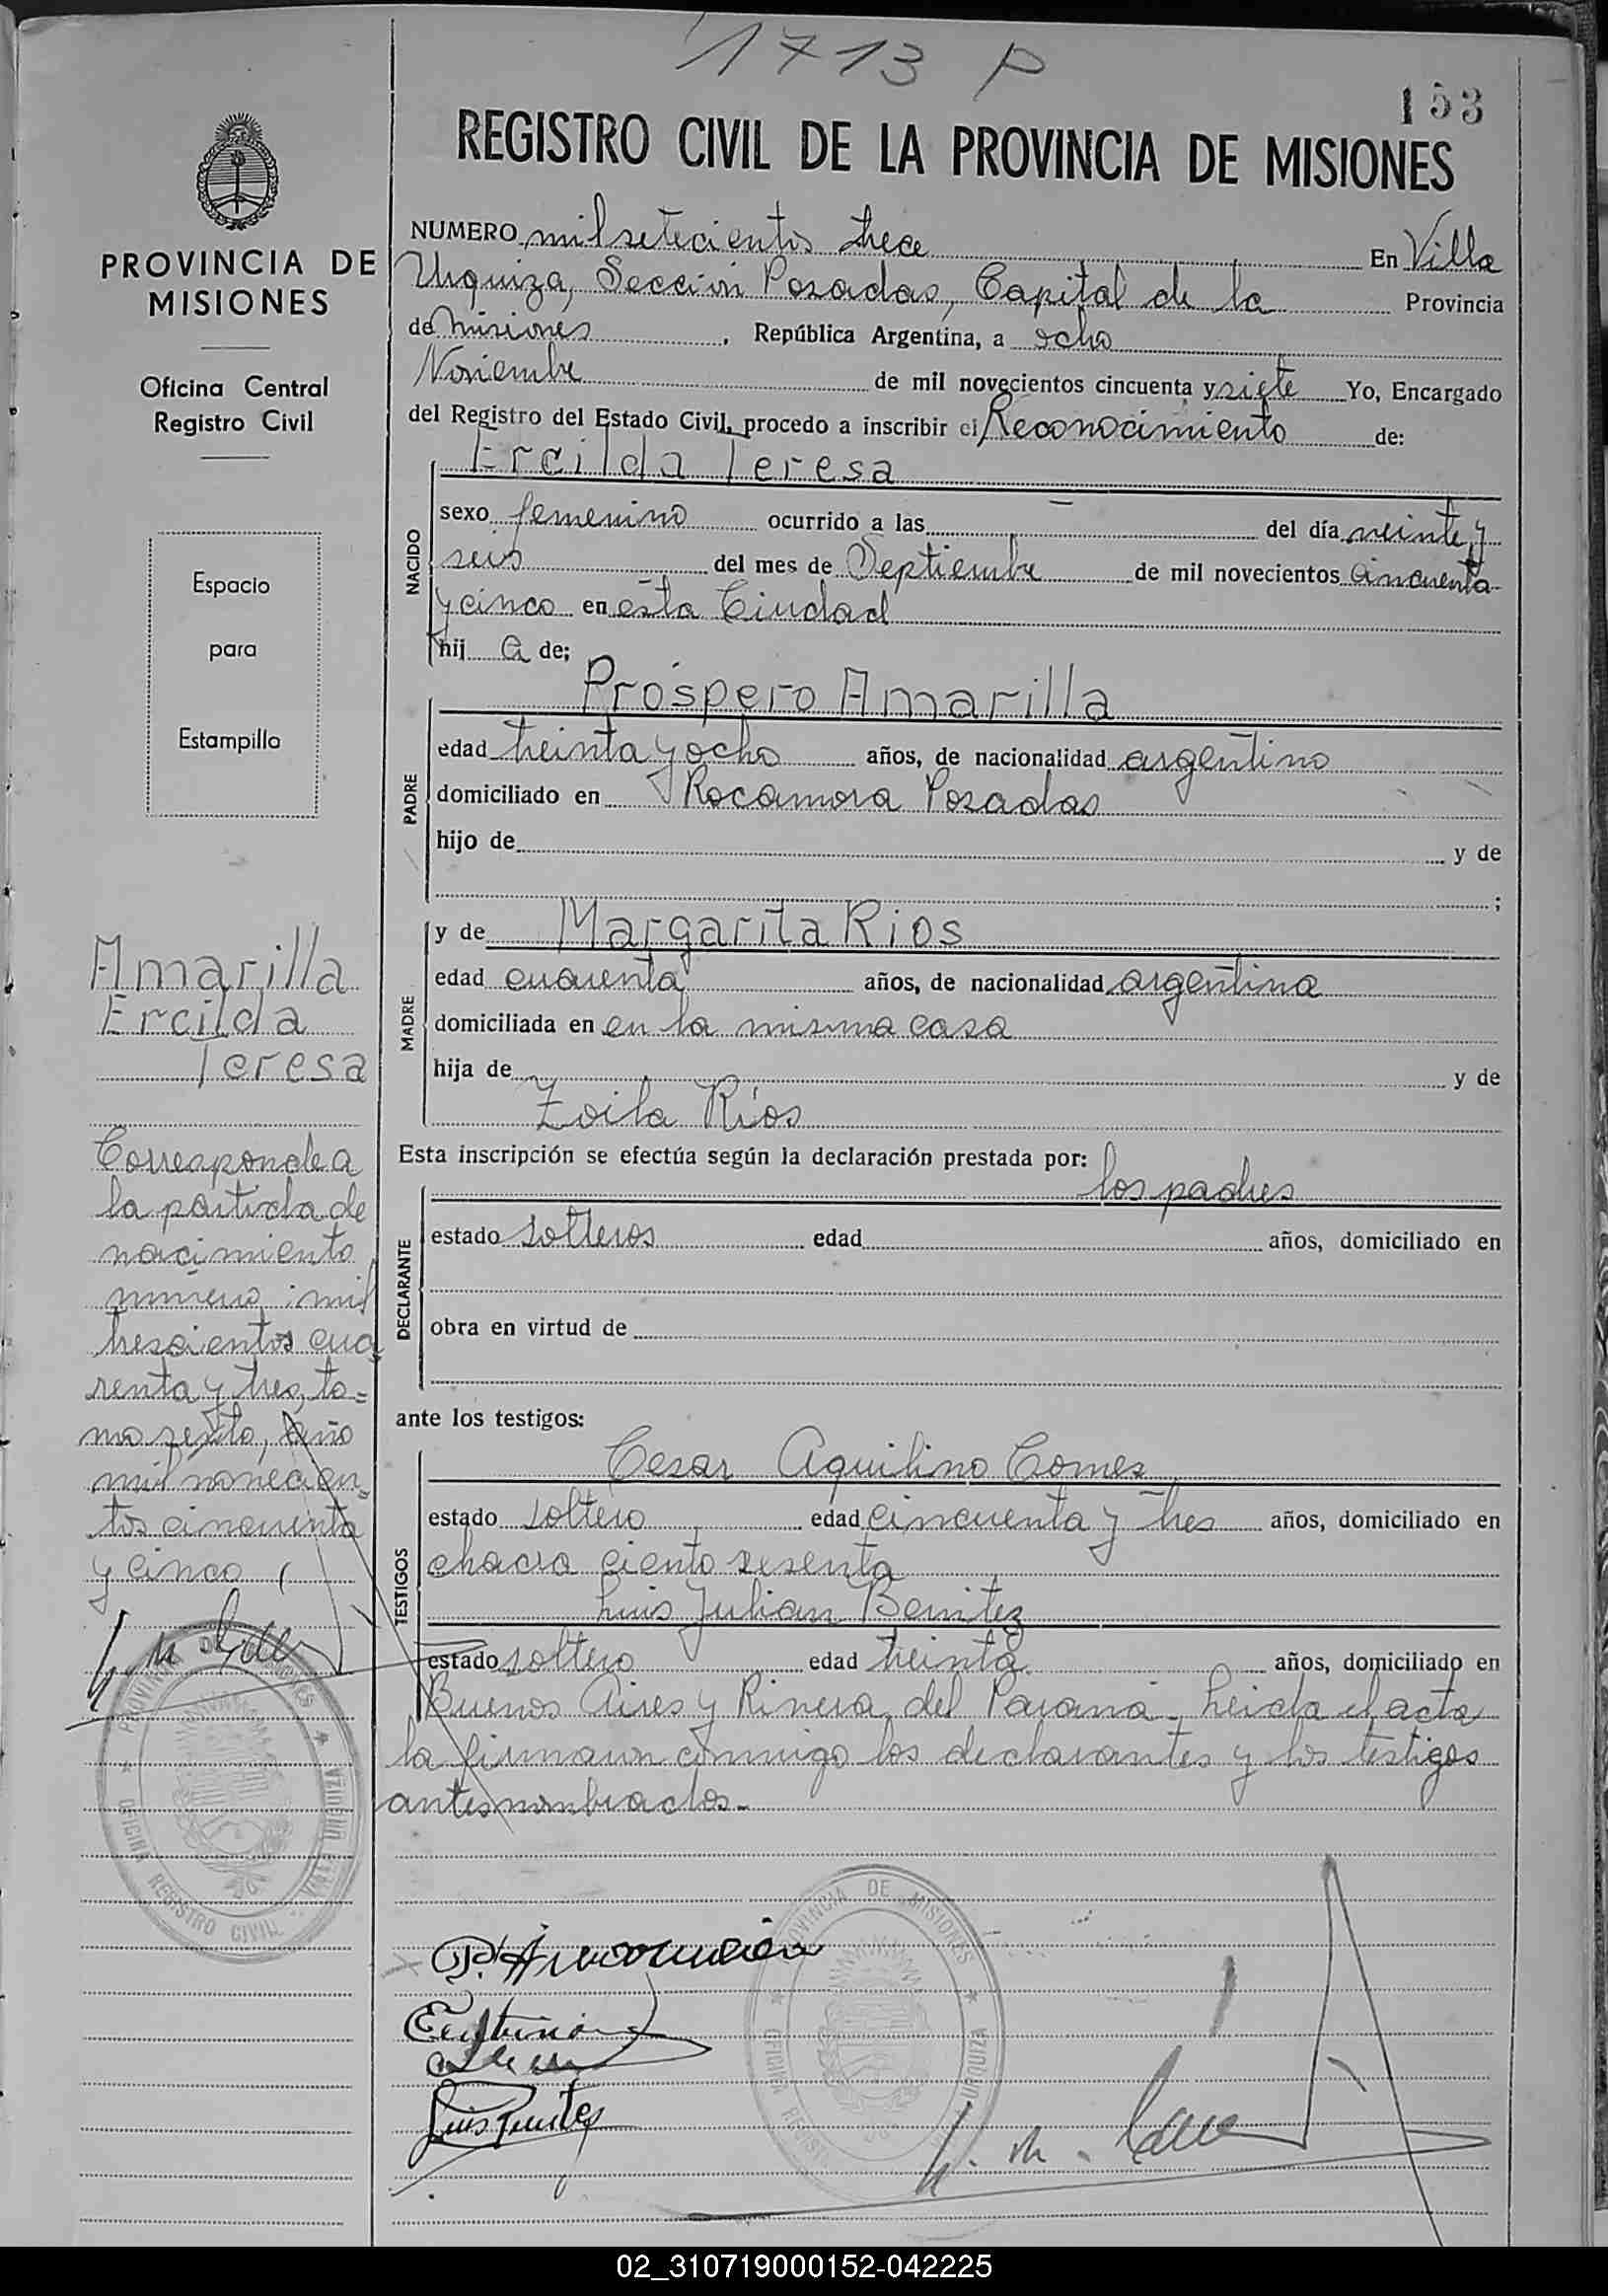 1713 P
153
REGISTRO CIVIL DE LA PROVINCIA DE MISIONES
PROVINCIA DE
MISIONES
Oficina Central
Registro Civil
Espacio
para
Estampilla
Amarilla
Ercilda
Teresa
Corresponde a
la partida de
nacimiento
número: mil
trescientos cua
renta y tres, to=
mo sexto, año
mil novecien=
tos cincuenta
y cinco
PROVINCIA DE MISIONES
OFICINA REGISTRO CIVIL VILLA URQUIZA
NUMERO mil setecientos trece En Villa
Urquiza, Sección Posadas, Capital de la Provincia
de Misiones, República Argentina, a ocho
Noviembre de mil novecientos cincuenta y siete Yo, Encargado
del Registro del Estado Civil, procedo a inscribir el Reconocimiento de:
Ercilda Teresa
NACIDO
sexo femenino ocurrido a las — del día veinte y
seis del mes de Septiembre de mil novecientos cincuenta
y cinco en esta Ciudad
hij a de;
Próspero Amarilla
PADRE
edad treinta y ocho años, de nacionalidad argentino
domiciliado en Rocamora Posadas
hijo de y de
;
MADRE
y de Margarita Rios
edad cuarenta años, de nacionalidad argentina
domiciliada en en la misma casa
hija de y de
Zoila Ríos
Esta inscripción se efectúa según la declaración prestada por:
los padres
DECLARANTE
estado solteros edad años, domiciliado en
obra en virtud de
ante los testigos:
Cesar Aquilino Gomes
TESTIGOS
estado soltero edad cincuenta y tres años, domiciliado en
chacra ciento sesenta
Luis Julian Benitez
estado soltero edad treinta años, domiciliado en
Buenos Aires y Rivera del Paraná - Leida el acta
la firmaron conmigo los declarantes y los testigos
antes nombrados.-
PROVINCIA DE MISIONES
OFICINA REGISTRO URQUIZA
02_310719000152-042225